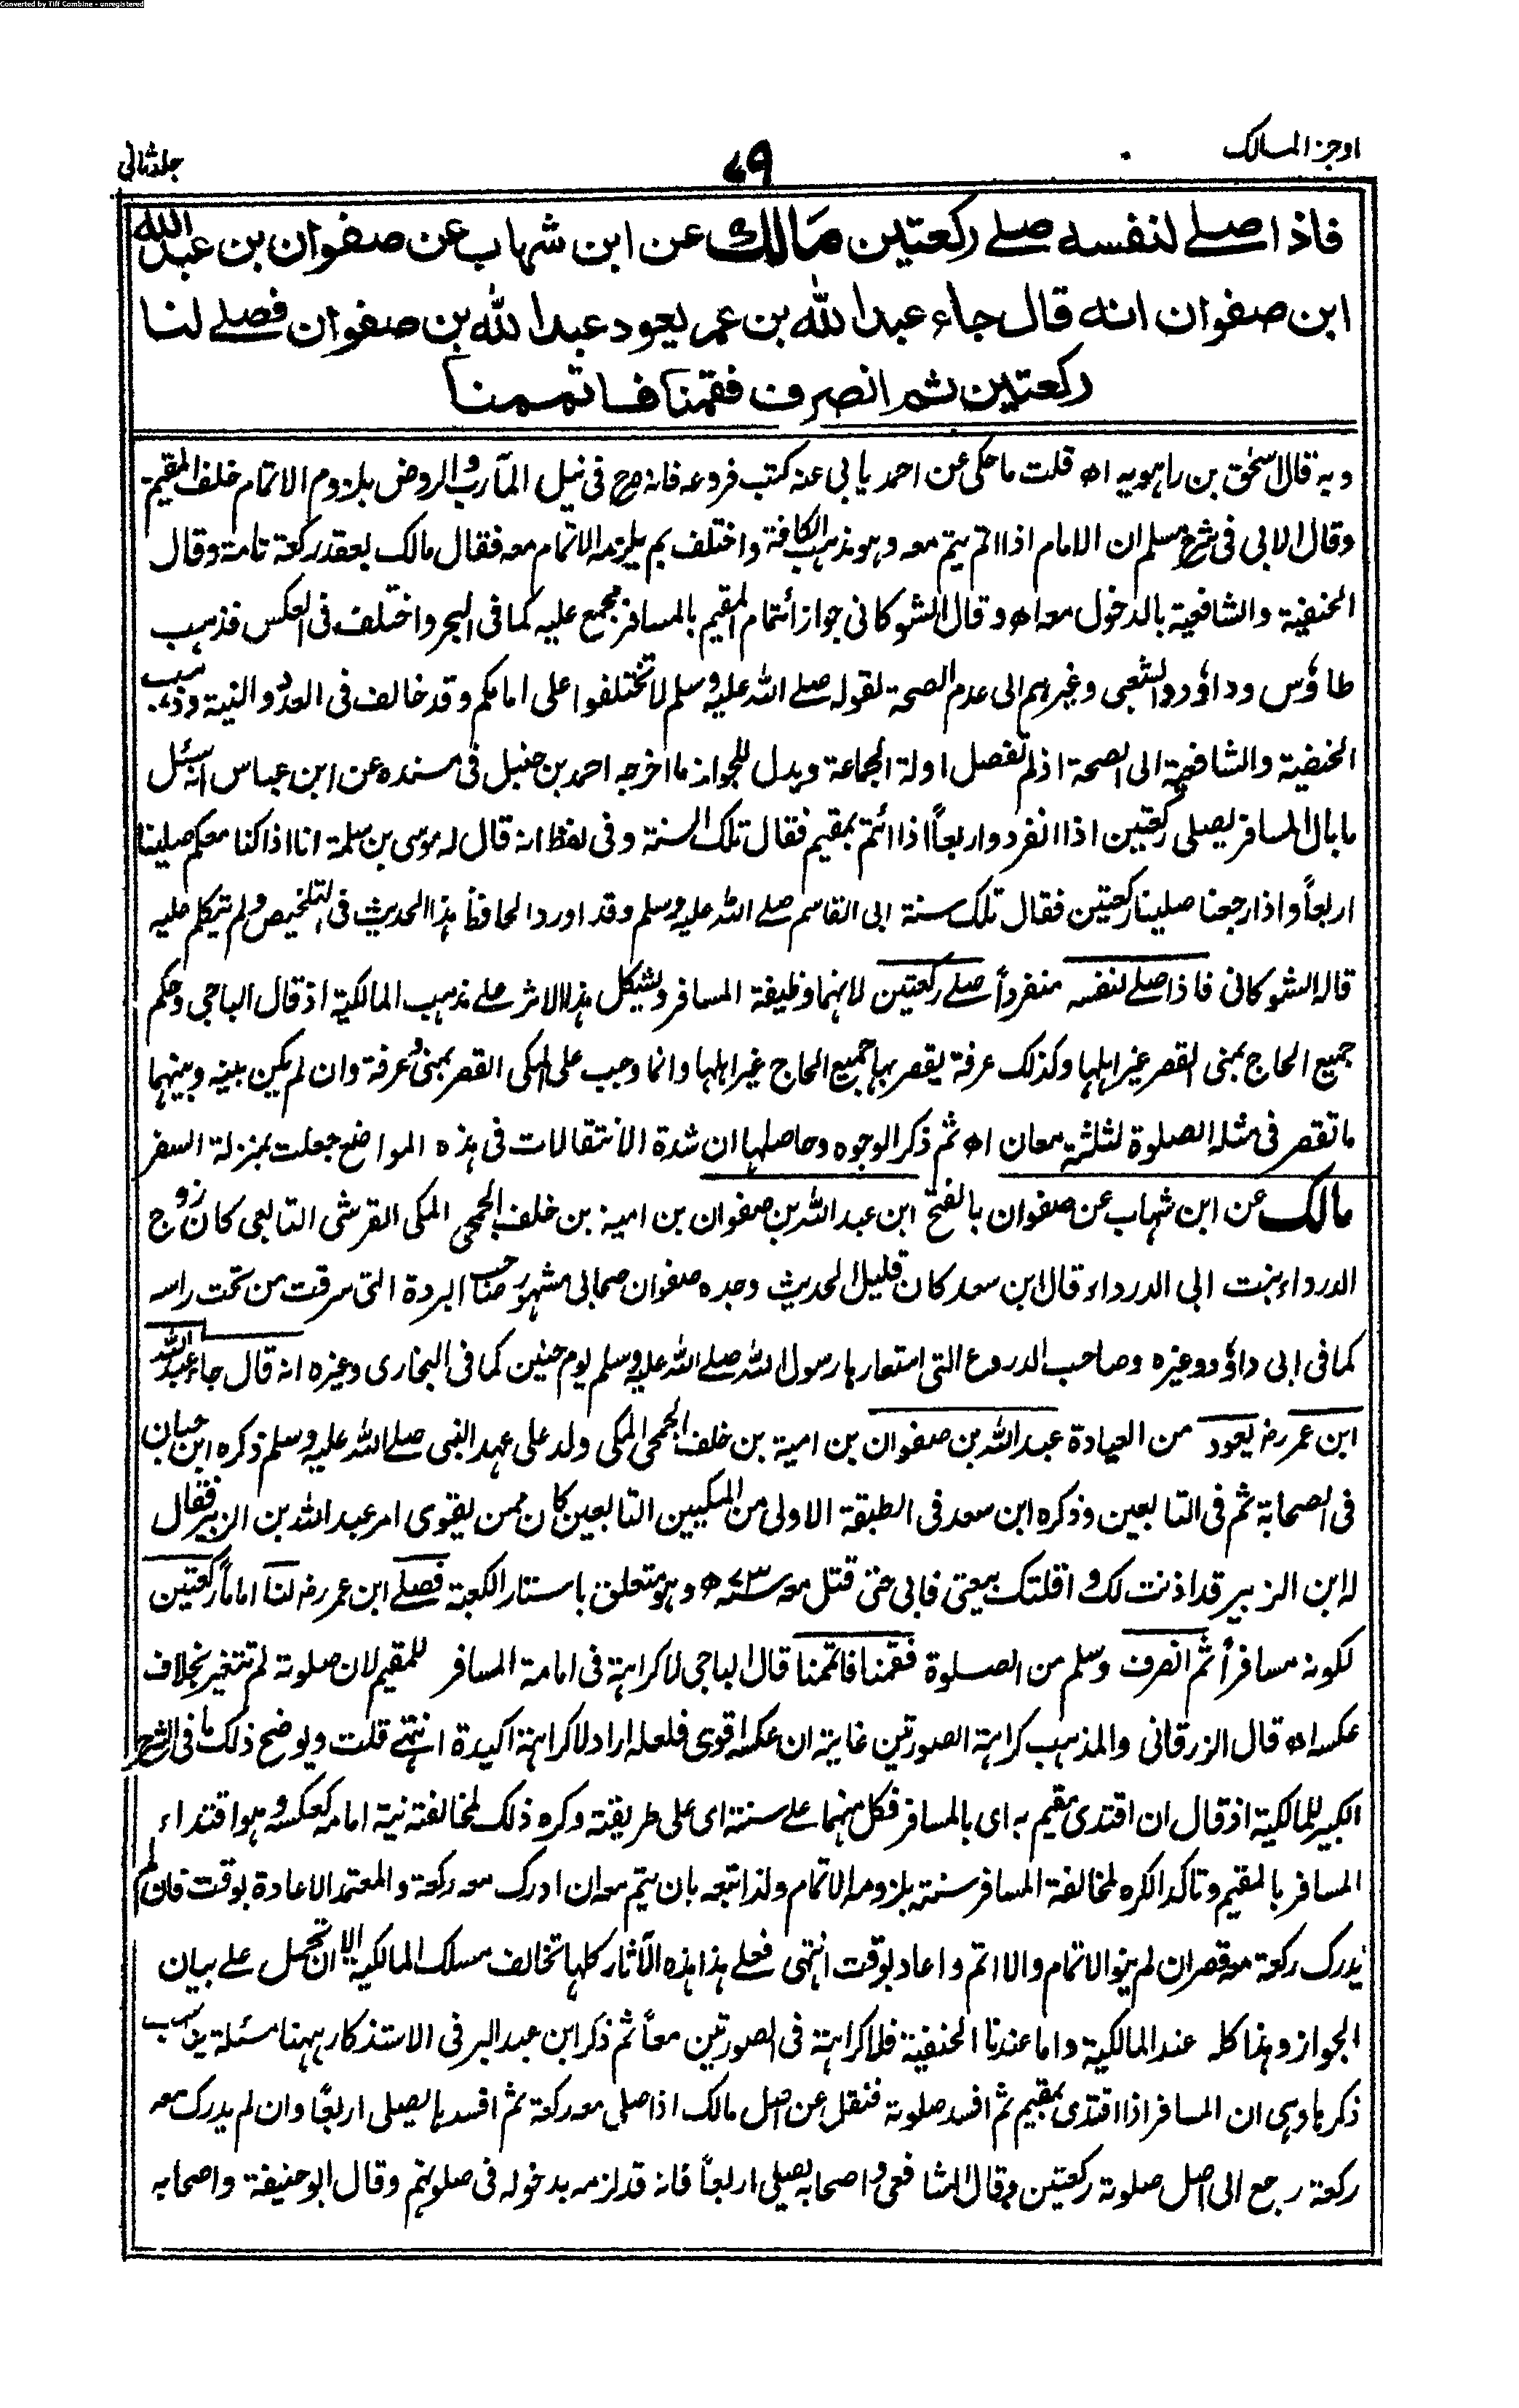 Converted by Tiff Combine - unregistered
اوجز المسالك
٧٩
جلد ثانی
فاذا صلے لنفسه صلے ركعتين مَالك عن ابن شهاب عن صفوان بن عبد الله
ابن صفوان انه قال جاء عبد الله بن عمر يعود عبد الله بن صفوان فصلے لنا
ركعتين ثم انصرف فقمنا فاتممنا
وبه قال اسحٰق بن راهويه اھ قلت ما حكى عن احمد يابى عنه كتب فروعه فانه صرح فى نيل المآرب والروض بلزوم الاتمام خلف المقيم
وقال الابى فى شرح مسلم ان الامام اذا اتم يتم معه وهو مذهب الكافة واختلف بم يلزمه الاتمام معه فقال مالك بعقد ركعة تامة وقال
الحنفية والشافعية بالدخول معه اھ وقال الشوكانى جواز ائتمام المقيم بالمسافر مجمع عليه كما فى البحر واختلف فى العكس فذهب
طاؤس وداؤد والشعبى وغيرهم الى عدم الصحة لقوله صلے الله عليه وسلم لا تختلفوا على امامكم وقد خالف فى العدد والنية وذهب
الحنفية والشافعية الى الصحة اذ لم تفصل ادلة الجماعة ويدل للجواز ما اخرجه احمد بن حنبل فى مسنده عن ابن عباس انه سئل
ما بال المسافر يصلى ركعتين اذا انفرد واربعاً اذا ائتم بمقيم فقال تلك السنة وفى لفظ انه قال له موسى بن سلمة انا اذا كنا معكم صلينا
اربعاً واذا رجعنا صلينا ركعتين فقال تلك سنة ابى القاسم صلے الله عليه وسلم وقد اورد الحافظ هذا الحديث فى التلخيص ولم يتكلم عليه
قاله الشوكانى فاذا صلے لنفسه منفرداً صلے ركعتين لانهما وظيفة المسافر ويشكل هذا الاثر علے مذهب المالكية اذ قال الباجى وحكم
جميع الحاج بمنى القصر غير اهلها وكذلك عرفة يقصر بها جميع الحاج غير اهلها وانما وجب على المكى القصر بمنى وعرفة وان لم يكن بينه وبينهما
ما تقصر فى مثله الصلوة لثلثة معان اھ ثم ذكر الوجوه وحاصلها ان شدة الانتقالات فى هذه المواضع جعلت بمنزلة السفر
مالك عن ابن شهاب عن صفوان بالفتح ابن عبد الله بن صفوان بن امية بن خلف الجمحى المكى القرشى التابعى كان زوج
الدرداء بنت ابى الدرداء قال ابن سعد كان قليل الحديث وجده صفوان صحابى مشهور صاحب البردة التى سرقت من تحت راسه
كما فى ابى داؤد وغيره وصاحب الدروع التى استعارها رسول الله صلے الله عليه وسلم يوم حنين كما فى البخارى وغيره انه قال جاء عبد الله
ابن عمر رض يعود من العيادة عبد الله بن صفوان بن امية بن خلف الجمحى المكى ولد على عهد النبى صلے الله عليه وسلم ذكره ابن حبان
فى الصحابة ثم فى التابعين وذكره ابن سعد فى الطبقة الاولى من المكيين التابعين كان ممن يقوى امر عبد الله بن الزبير فقال
له ابن الزبير قد اذنت لك واقلتك بيعتى فابى حتى قتل معه سنة ٧٣ھ وهو متعلق باستار الكعبة فصلے ابن عمر رض لنا اماماً ركعتين
لكونه مسافراً ثم انصرف وسلم من الصلوة فقمنا فاتممنا قال الباجى لا كراهة فى امامة المسافر للمقيم لان صلوته لم تتغير بخلاف
عكسه اھ قال الزرقانى والمذهب كراهة الصورتين غايته ان عكسه اقوى فلعله اراد لا كراهة اكيدة انتهے قلت ويوضح ذلك ما فى الشرح
الكبير للمالكية اذ قال ان اقتدى مقيم به اى بالمسافر فكل منهما علے سنته اى على طريقته وكره ذلك لمخالفته نية امامه كعكسه وهو اقتداء
المسافر بالمقيم وتاكد الكره لمخالفة المسافر سنته بلزومه الاتمام ولذا تبعه بان يتم معه ان ادرك معه ركعة والمعتمد الاعادة بوقت فان لم
يدرك ركعة معه قصر ان لم ينو الاتمام والا اتم واعاد بوقت انتهى فعلے هذا هذه الآثار كلها تخالف مسلك المالكية الا ان تحمل علے بيان
الجواز وهذا كله عند المالكية واما عندنا الحنفية فلا كراهة فى الصورتين معاً ثم ذكر ابن عبد البر فى الاستذكار ههنا مسئلة يناسب
ذكرها وهى ان المسافر اذا اقتدى بمقيم ثم افسد صلوته فنقل عن اصل مالك اذا صلى معه ركعة ثم افسدها يصلى اربعاً وان لم يدرك معه
ركعة رجع الى اصل صلوته ركعتين وقال الشافعى واصحابه يصلى اربعاً فانه قد لزمه بدخوله فى صلوتهم وقال ابو حنيفة واصحابه